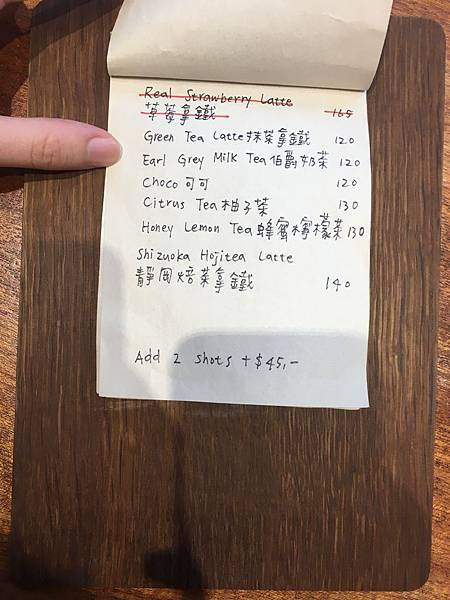 Real Strawberry Latte
草莓拿鐵 165
Green Tea Latte 抹茶拿鐵 120
Earl Grey Milk Tea 伯爵奶茶 120
Choco 可可 120
Citrus Tea 柚子茶 130
Honey Lemon Tea 蜂蜜檸檬茶 130
Shizuoka Hojitea Latte
靜岡焙茶拿鐵 140
Add 2 shots +$45,-